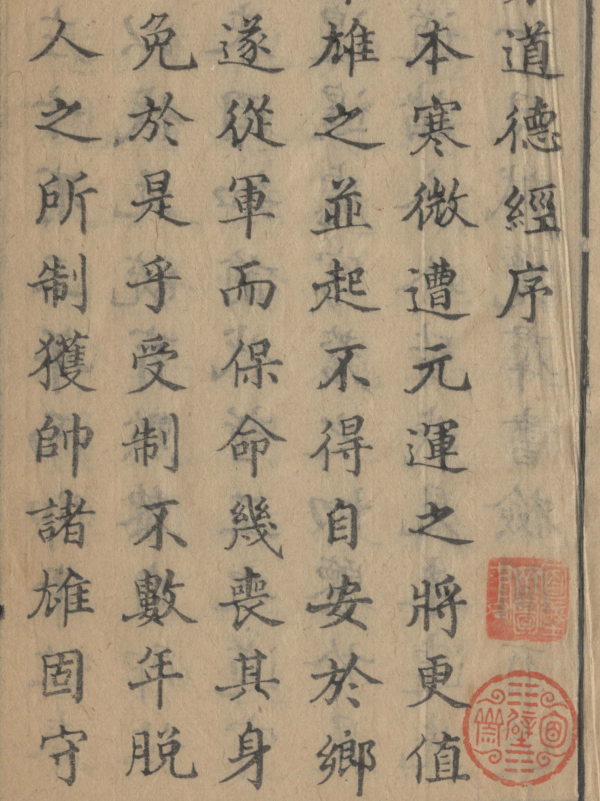 道德經序
本寒微遭元運之將更值
雄之並起不得自安於鄉
遂從軍而保命幾喪其身
免於是乎受制不數年脫
人之所制獲帥諸雄固守